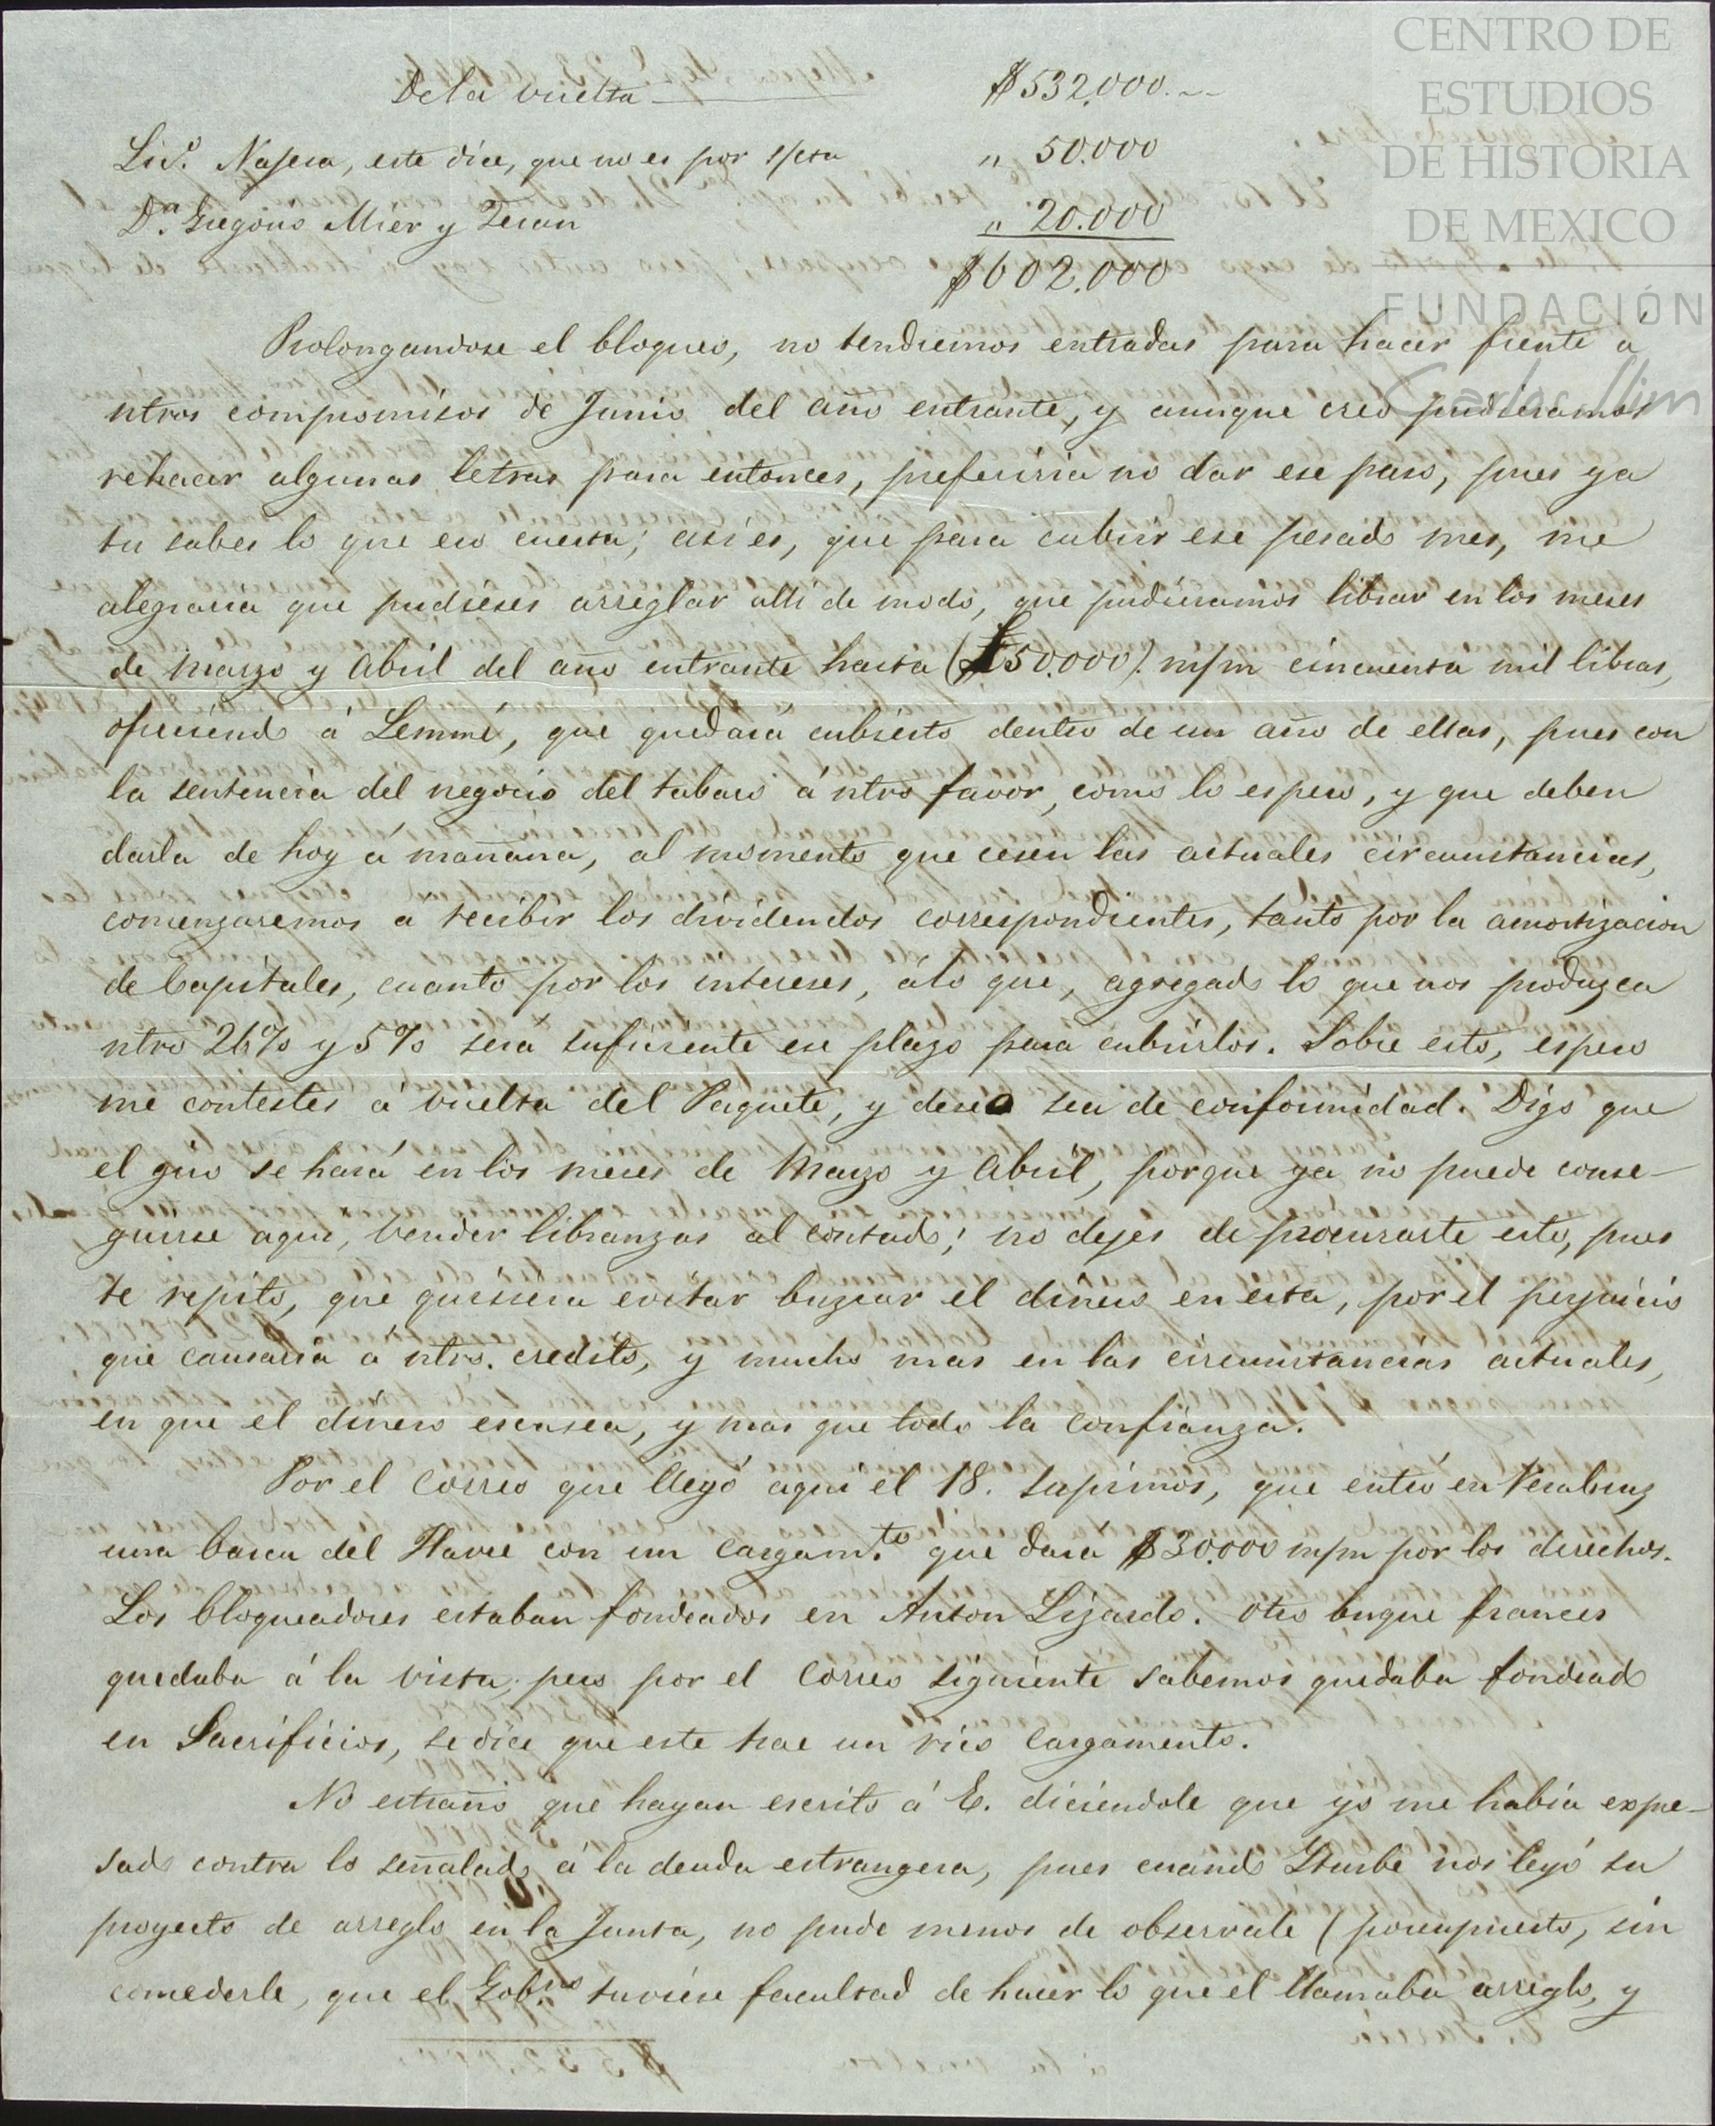 CENTRO DE
ESTUDIOS
DE HISTORIA
DE MEXICO
FUNDACIÓN
Carlos Slim
De la vuelta $532.000.~
Licº. Najera, este dice, que no es por s/cta „ 50.000
Dⁿ. Gregorio Mier y Teran „ 20.000
$602.000
Prolongandose el bloqueo, no tendremos entradas para hacer frente á
ntros compromisos de Junio del año entrante, y aunque creo pudieramos
rehacer algunas letras para entonces, preferiria no dar ese paso, pues ya
tu sabes lo que eso cuesta; asi es, que para cubrir ese pesado mes, me
alegraria que pudieses arreglar alli de modo, que pudieramos librar en los meses
de Marzo y Abril del año entrante hasta (£50.000) m/m cincuenta mil libras,
ofreciendo á Lemmé, que quedará cubierto dentro de un año de ellas, pues con
la sentencia del negocio del tabaco á ntro favor, como lo espero, y que deben
darla de hoy á mañana, al momento que cesen las actuales circunstancias,
comenzaremos a recibir los dividendos correspondientes, tanto por la amortizacion
de Capitales, cuanto por los intereses, á lo que, agregado lo que nos produzca
ntro 26% y 5% será suficiente ese plazo para cubrirlos. Sobre esto, espero
me contestes á vuelta del Paquete, y deseo sea de conformidad. Digo que
el giro se hará en los meses de Marzo y Abril, porque ya no puede conse-
guirse aqui, vender libranzas al contado; no dejes de procurarte esto, pues
te repito, que quisiera evitar buzcar el dinero en esta, por el perjuicio
que causaria á ntro. credito, y mucho mas en las circunstancias actuales,
en que el dinero escasea, y mas que todo la confianza.
Por el Correo que llegó aqui el 18. supimos, que entró en Veracruz
una barca del Havre con un cargam.to que dará $30.000 m/m por los derechos.
Los bloqueadores estaban fondeados en Anton Lizardo. Otro buque frances
quedaba á la vista, pero por el Correo siguiente sabemos quedaba fondeado
en Sacrificios, se dice que este trae un rico cargamento.
No estraño que hayan escrito á E. diciendole que yo me habia expre-
sado contra lo señalado á la deuda estrangera, pues cuando Iturbe nos leyó su
proyecto de arreglo en la Junta, no pude menos de observarle (por supuesto, sin
concederle, que el Gob.no tuviese facultad de hacer lo que el llamaba arreglo, y